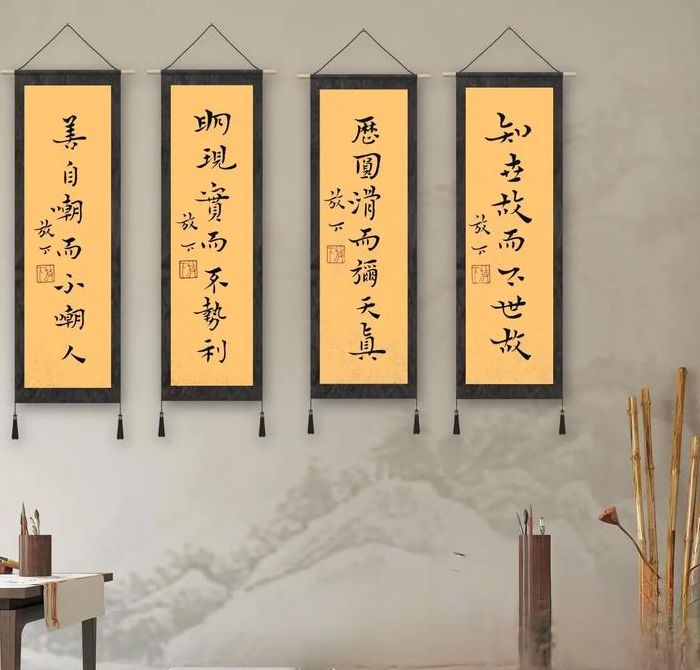 知世故而不世故
放下
歷圓滑而彌天眞
放下
明現實而不勢利
放下
善自嘲而不嘲人
放下